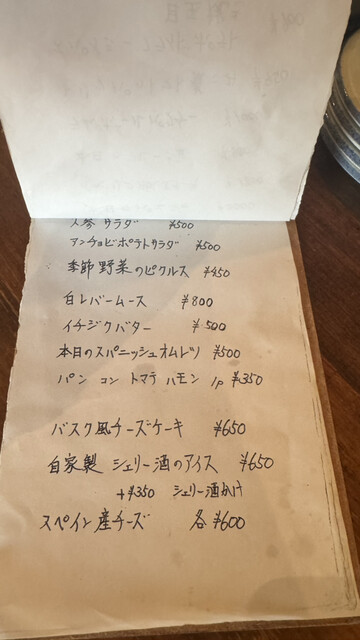 人参 サラダ ¥500
アンチョビポテトサラダ ¥500
季節野菜のピクルス ¥450
白レバームース ¥800
イチジクバター ¥500
本日のスパニッシュオムレツ ¥500
パン コン トマテ ハモン 1p ¥350
バスク風チーズケーキ ¥650
自家製 シェリー酒のアイス ¥650
+¥350 シェリー酒かけ
スペイン産チーズ 各 ¥600